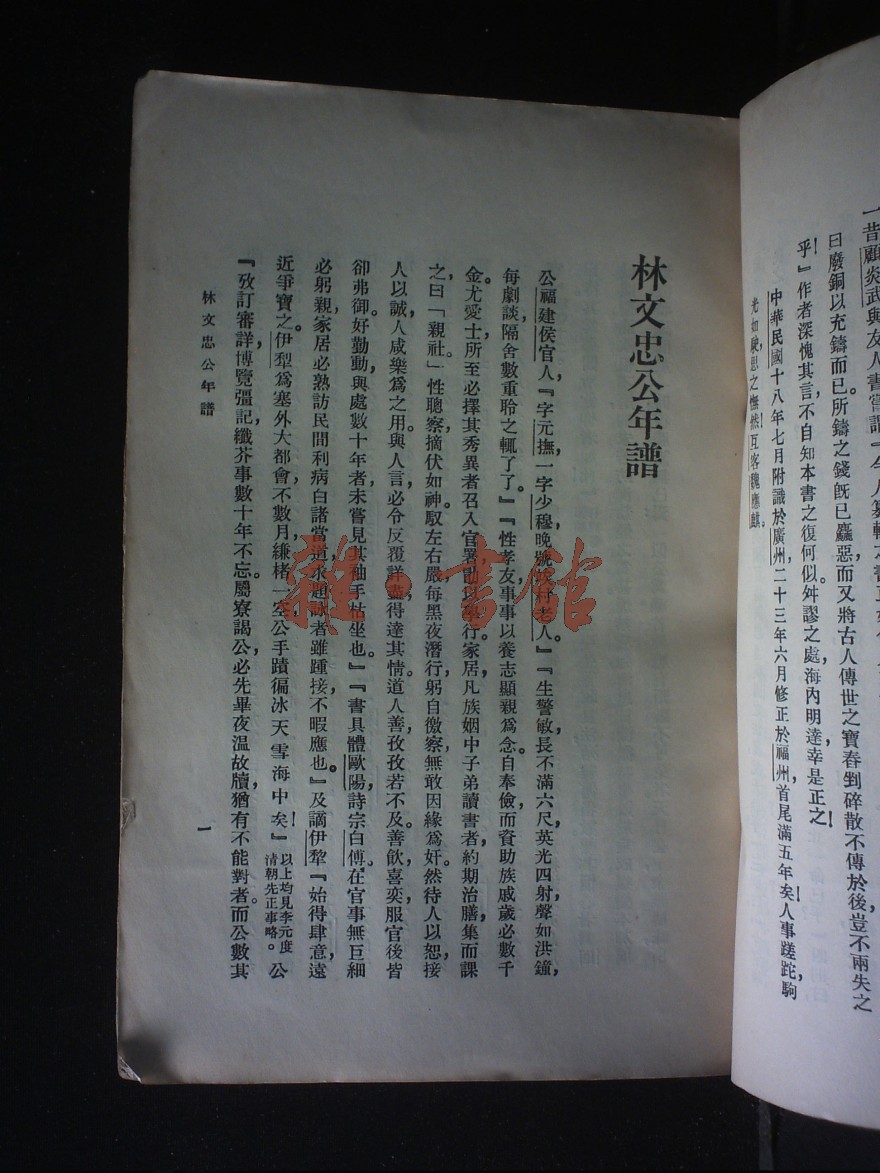 一昔顧炎武與友人書嘗謂『今人纂輯之書正如今人之
曰廢銅以充鑄而已所鑄之錢旣已麤惡而又將古人傳世之寶舂剉碎散不傳於後豈不兩失之
乎』作者深愧其言不自知本書之復何似舛謬之處海內明達幸是正之
中華民國十八年七月附識於廣州二十三年六月修正於福州首尾滿五年矣人事蹉跎駒
光如駛思之憮然互客魏應麒
林文忠公年譜
公福建侯官人『字元撫一字少穆晚號竢村老人』『生警敏長不滿六尺英光四射聲如洪鐘
每劇談隔舍數重聆之輒了了』『性孝友事事以養志顯親爲念自奉儉而資助族戚歲必數千
金尤愛士所至必擇其秀異者召入官署勖以學行家居凡族姻中子弟讀書者約期治膳集而課
之曰「親社」性聰察摘伏如神馭左右嚴每黑夜潛行躬自徼察無敢因緣爲奸然待人以恕接
人以誠人咸樂爲之用與人言必令反覆詳盡得達其情道人善孜孜若不及善飮喜奕服官後皆
卻弗御好勤動與處數十年者未嘗見其袖手枯坐也』『書具體歐陽詩宗白傅在官事無巨細
必躬親家居必熟訪民間利病白諸當道求題詠者雖踵接不暇應也』及謫伊犂『始得肆意遠
近爭寶之伊犂爲塞外大都會不數月縑楮一空公手蹟徧冰天雪海中矣』以上均見李元度清朝先正事略。公
『攷訂審詳博覽彊記纖芥事數十年不忘屬寮謁公必先畢夜温故牘猶有不能對者而公數其
林文忠公年譜
一
雜·書館